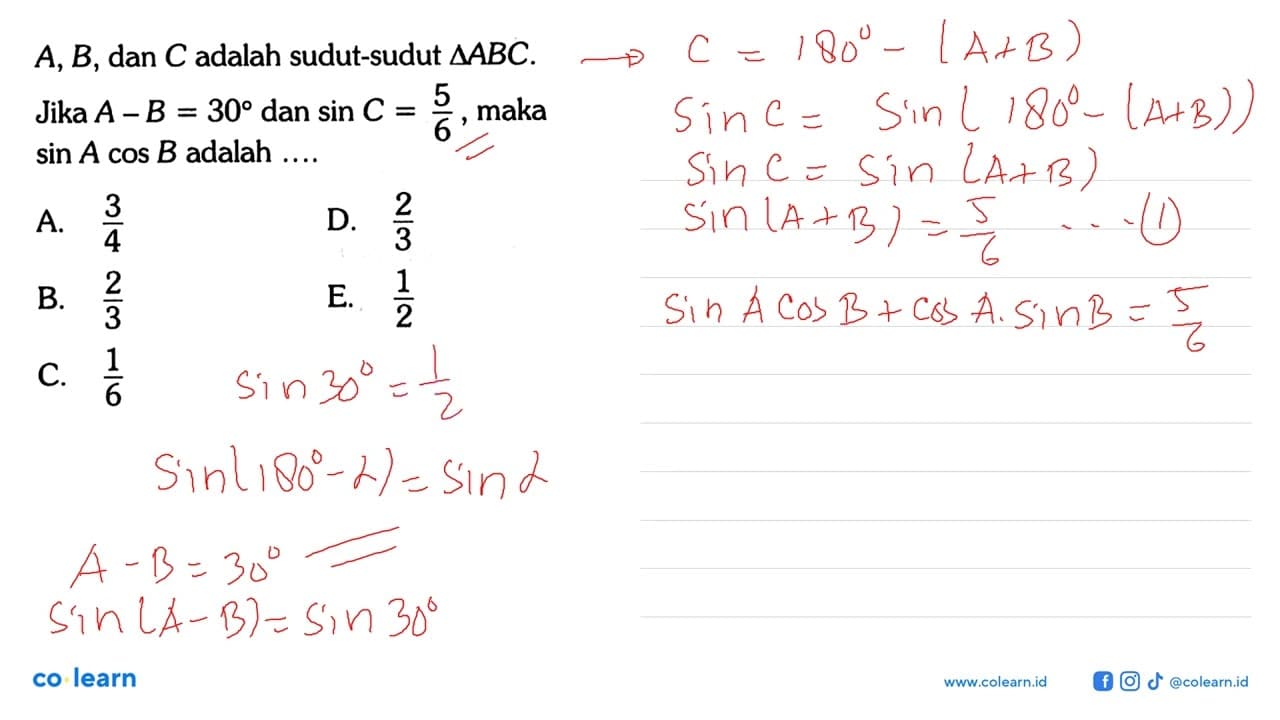 A, B, dan C adalah sudut-sudut ΔABC.
Jika A – B = 30° dan sin C = 5/6, maka
sin A cos B adalah ....
A. 3/4
B. 2/3
C. 1/6
D. 2/3
E. 1/2
sin 30° = 1/2
Sin(180° - α) = Sin α
A - B = 30°
Sin(A - B) = Sin 30°
C = 180° - (A + B)
Sin C = Sin(180° - (A+B))
Sin C = Sin (A + B)
Sin(A + B) = 5/6 ... (1)
Sin A Cos B + Cos A. Sin B = 5/6
co learn
www.colearn.id
@colearn.id